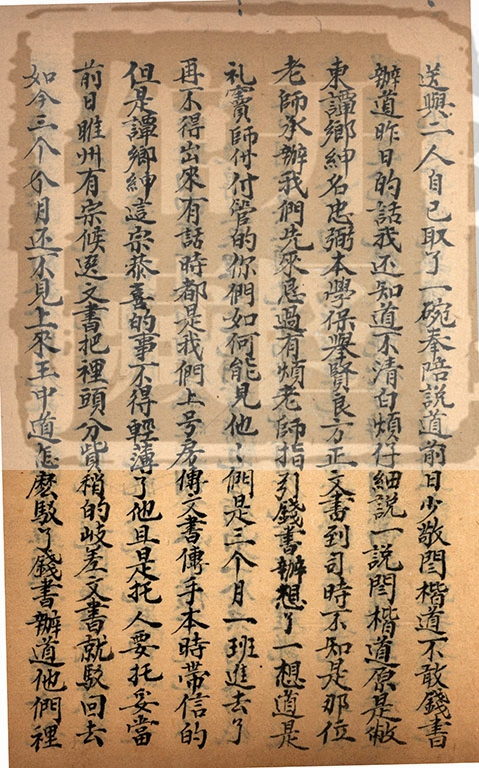 送興二人自己取了一碗奉陪説道前日少敬閻楷道不敢錢書
辦道昨日的話我还知道不清白煩仔細説一説閻楷道原是敝
東譚鄉紳名忠弼本學保舉賢良方正文書到司時不知是那位
老師承辦我們先來恳過有煩老師指引錢書辦想了一想道是
礼賓師付付管的你們如何能見他〻們是三个月一班進去了
再不得出來有話時都是我們上号房傳文書傳手本時帶信的
但是譚鄉紳這宗恭喜的事不得輕薄了他且是托人要托妥當
前日睢州有宗候選文書把裡頭分貲稍的岐差文書就駁回去
如今三个分月还不見上來王中道怎麽駁了錢書辦道他們裡